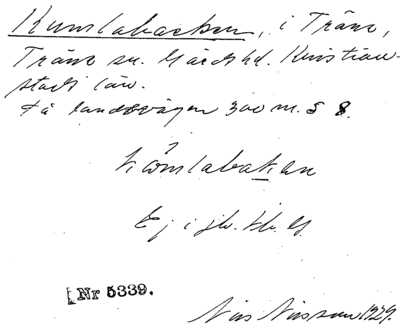 Kumlabacken, i Träne,
Träne sn. Gärds hd. Kristian-
stads län.
På landsvägen 300 m. S 8.
kåmlabakan
Ej i
[Nr 5339.
Nils Nilsson 1929.